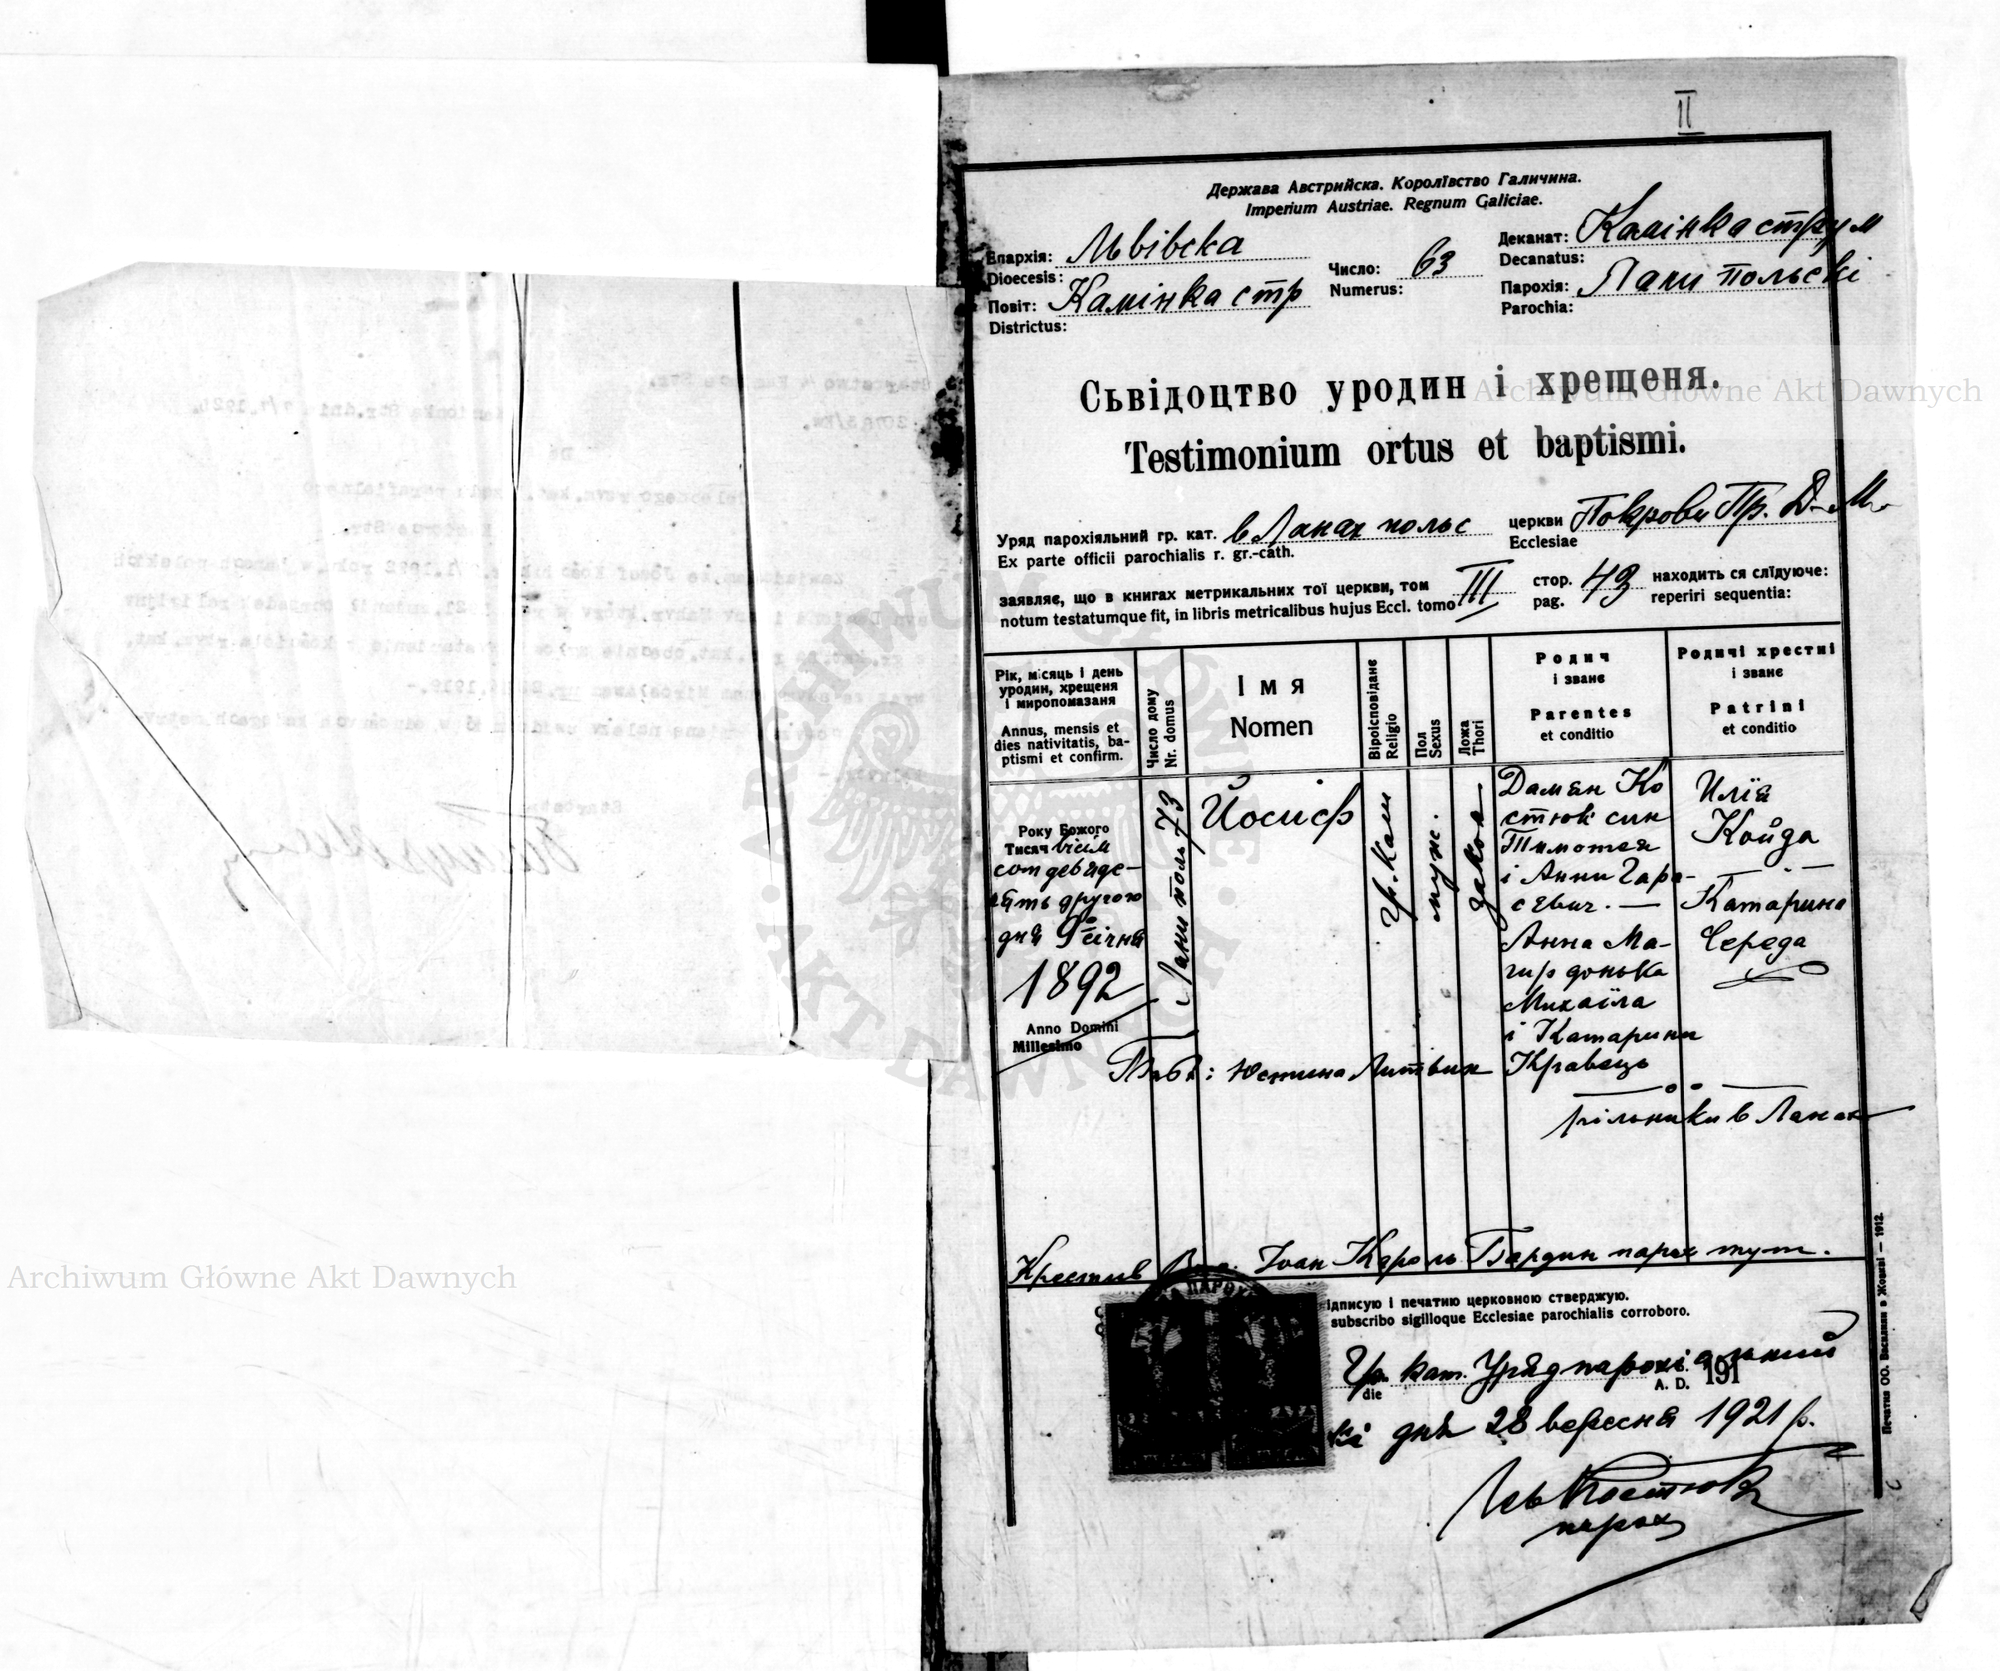 II
Держава Австрийска. Королївство Галичина.
Imperium Austriae. Regnum Galiciae.
Епархія: Львівска
Dioecesis:
Повіт: Камінка стр
Districtus:
Число: 63
Numerus:
Деканат: Камінка струм
Decanatus:
Парохія: Лани польскі
Parochia:
Сьвідоцтво уродин і хрещеня.
Testimonium ortus et baptismi.
Уряд парохіяльний гр. кат. в Ланах польс церкви Покрови Пр. Д. М.
Ex parte officii parochialis r. gr.-cath. Ecclesiae
заявляє, що в книгах метрикальних тої церкви, том III стор. 43 находить ся слїдуюче:
notum testatumque fit, in libris metricalibus hujus Eccl. tomo pag. reperiri sequentia:
Рік, місяць і день
уродин, хрещеня
і миропомазаня
Annus, mensis et
dies nativitatis, ba-
ptismi et confirm.
Число дому
Nr. domus
Імя
Nomen
Віроісповідане
Religio
Пол
Sexus
Ложа
Thori
Родич
і зване
Parentes
et conditio
Родичі хрестні
і зване
Patrini
et conditio
Року Божого
Тисяч вісїм
сот девяде-
сять другого
дня 9 січня
1892
Anno Domini
Millesimo
Лани поль 73
Йосиф
гр. кат
муж.
закон
Дамян Ко
стюк син
Тимотея
і Анни Гара-
севич. —
Анна Ма-
гир донька
Михаїла
і Катарини
Кравець
Илїя
Койда
Катарина
Середа
Баба: Юстина Литвин
рільники в Ланах
Крестив Іван Кароль Бардин парох тут.
ідписую і печатию церковною стверджую.
subscribo sigilloque Ecclesiae parochialis corroboro.
Гр. кат. Уряд парохіяльний
die A. D. 191
дня 28 вересня 1921 р.
Лев Костюк
парох
Печатня ОО. Василиян в Жовкві — 1912.
Archiwum Główne Akt Dawnych
Archiwum Główne Akt Dawnych
ARCHIWUM GŁÓWNE
AKT DAWNYCH